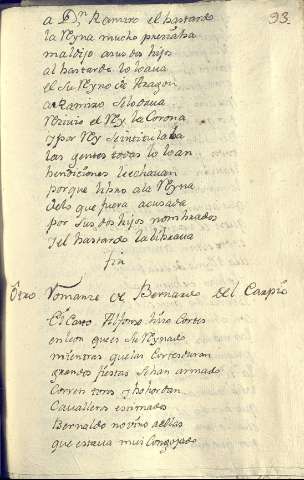 93.
a D.ⁿ Ramiro el bastardo
la Reyna mucho preciaba
maldijo a sus dos hijos
al bastardo loloaua
el su Reyno de Aragon
a Ramiro
el Rey la Corona
y por Rey se intitulaba
las gentes todas lo loan
bendiciones le echauan
porque libro a la Reyna
delo que fuera acusada
por sus dos hijos nombrados
y el bastardo la libraua
fin
Otro Romanze de Bernardo del Carpio
El Casto Alfonso hizo Cortes
en leon que es su Reynado
mientras que las Cortes duran
grandes fiestas se han armado
Corren toros y bohordan
Caualleros estimados
Bernaldo no vino a ellas
que estaua mui Congojado